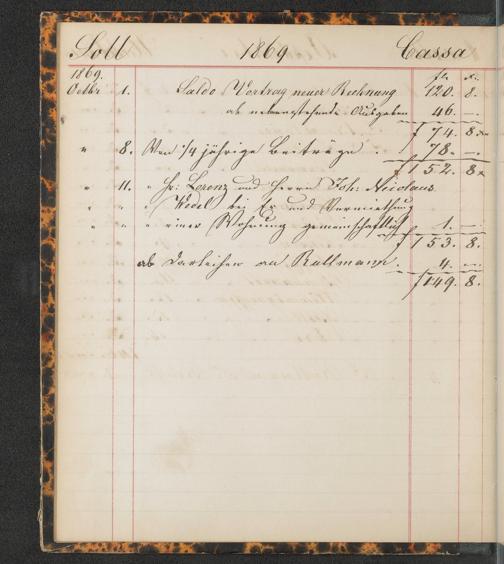 Soll 1869 Cassa
1869. fl. x.
Octbr 1. Saldo Vortrag neuer Rechnung 120. 8.
ab nebenstehende Ausgaben 46. —.
f 74. 8.x
" 8. Von 1/4 jährige Beiträge . 78. —.
f 152. 8x
" 11. " Hr: Lorenz und Herrn Joh: Nicolaus
" " Wedel bei und Vermiethung
" " " einer Wohnung gemeinschaftlich 1. —
f 153. 8.
ab Darleihen an Kullmann. 4. —.
f 149. 8.